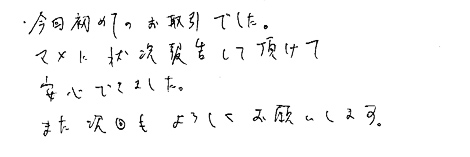 ・今回初めてのお取引でした。
マメに状次報告して頂けて
安心できました。
また次回もよろしくお願いします。